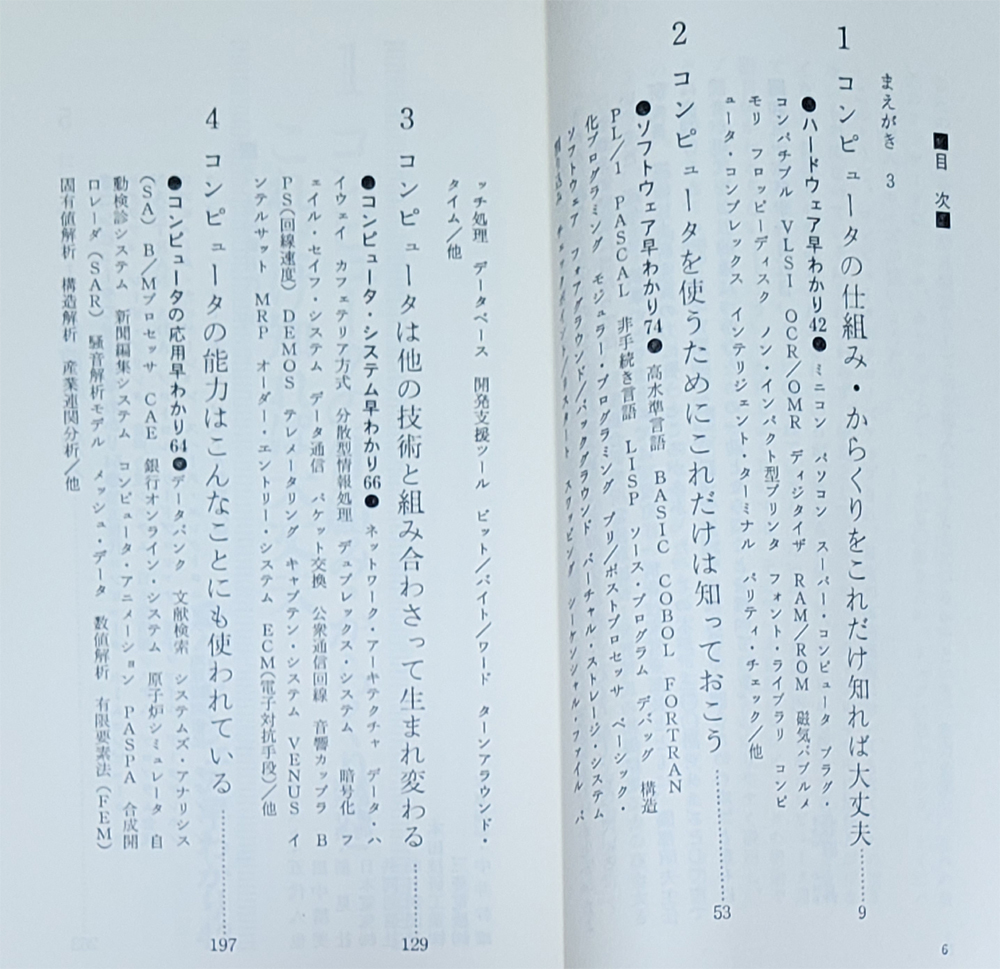 ■目 次■
まえがき 3
1 コンピュータの仕組み・からくりをこれだけ知れば大丈夫 9
●ハードウェア早わかり42● ミニコン パソコン スーパー・コンピュータ プラグ・
コンパチブル VLSI OCR/OMR ディジタイザ RAM/ROM 磁気バブルメ
モリ フロッピーディスク ノン・インパクト型プリンタ フォント・ライブラリ コンピ
ュータ・コンプレックス インテリジェント・ターミナル パリティ・チェック/他
2 コンピュータを使うためにこれだけは知っておこう 53
●ソフトウェア早わかり74● 高水準言語 BASIC COBOL FORTRAN
PL/1 PASCAL 非手続き言語 LISP ソース・プログラム デバッグ 構造
化プログラミング モジュラー・プログラミング プリ/ポストプロセッサ ベーシック・
ソフトウェア フォアグラウンド/バックグラウンド バーチャル・ストレージ・システム
割り込み チェックポイント/リスタート スワッピング シーケンシャル・ファイル バ
6
ッチ処理 データベース 開発支援ツール ビット/バイト/ワード ターンアラウンド・
タイム/他
3 コンピュータは他の技術と組み合わさって生まれ変わる 129
●コンピュータ・システム早わかり66● ネットワーク・アーキテクチャ データ・ハ
イウェイ カフェテリア方式 分散型情報処理 デュプレックス・システム 暗号化 フ
ェイル・セイフ・システム データ通信 パケット交換 公衆通信回線 音響カップラ B
PS(回線速度) DEMOS テレメータリング キャプテン・システム VENUS イ
ンテルサット MRP オーダー・エントリー・システム ECM(電子対抗手段)/他
4 コンピュータの能力はこんなことにも使われている 197
●コンピュータの応用早わかり64● データバンク 文献検索 システムズ・アナリシス
(SA) B/Mプロセッサ CAE 銀行オンライン・システム 原子炉シミュレータ 自
動検診システム 新聞編集システム コンピュータ・アニメーション PASPA 合成開
口レーダ(SAR) 騒音解析モデル メッシュ・データ 数値解析 有限要素法(FEM)
固有値解析 構造解析 産業連関分析/他